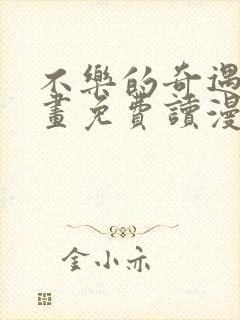 不樂的奇遇
畫免費讀漫
金小亦